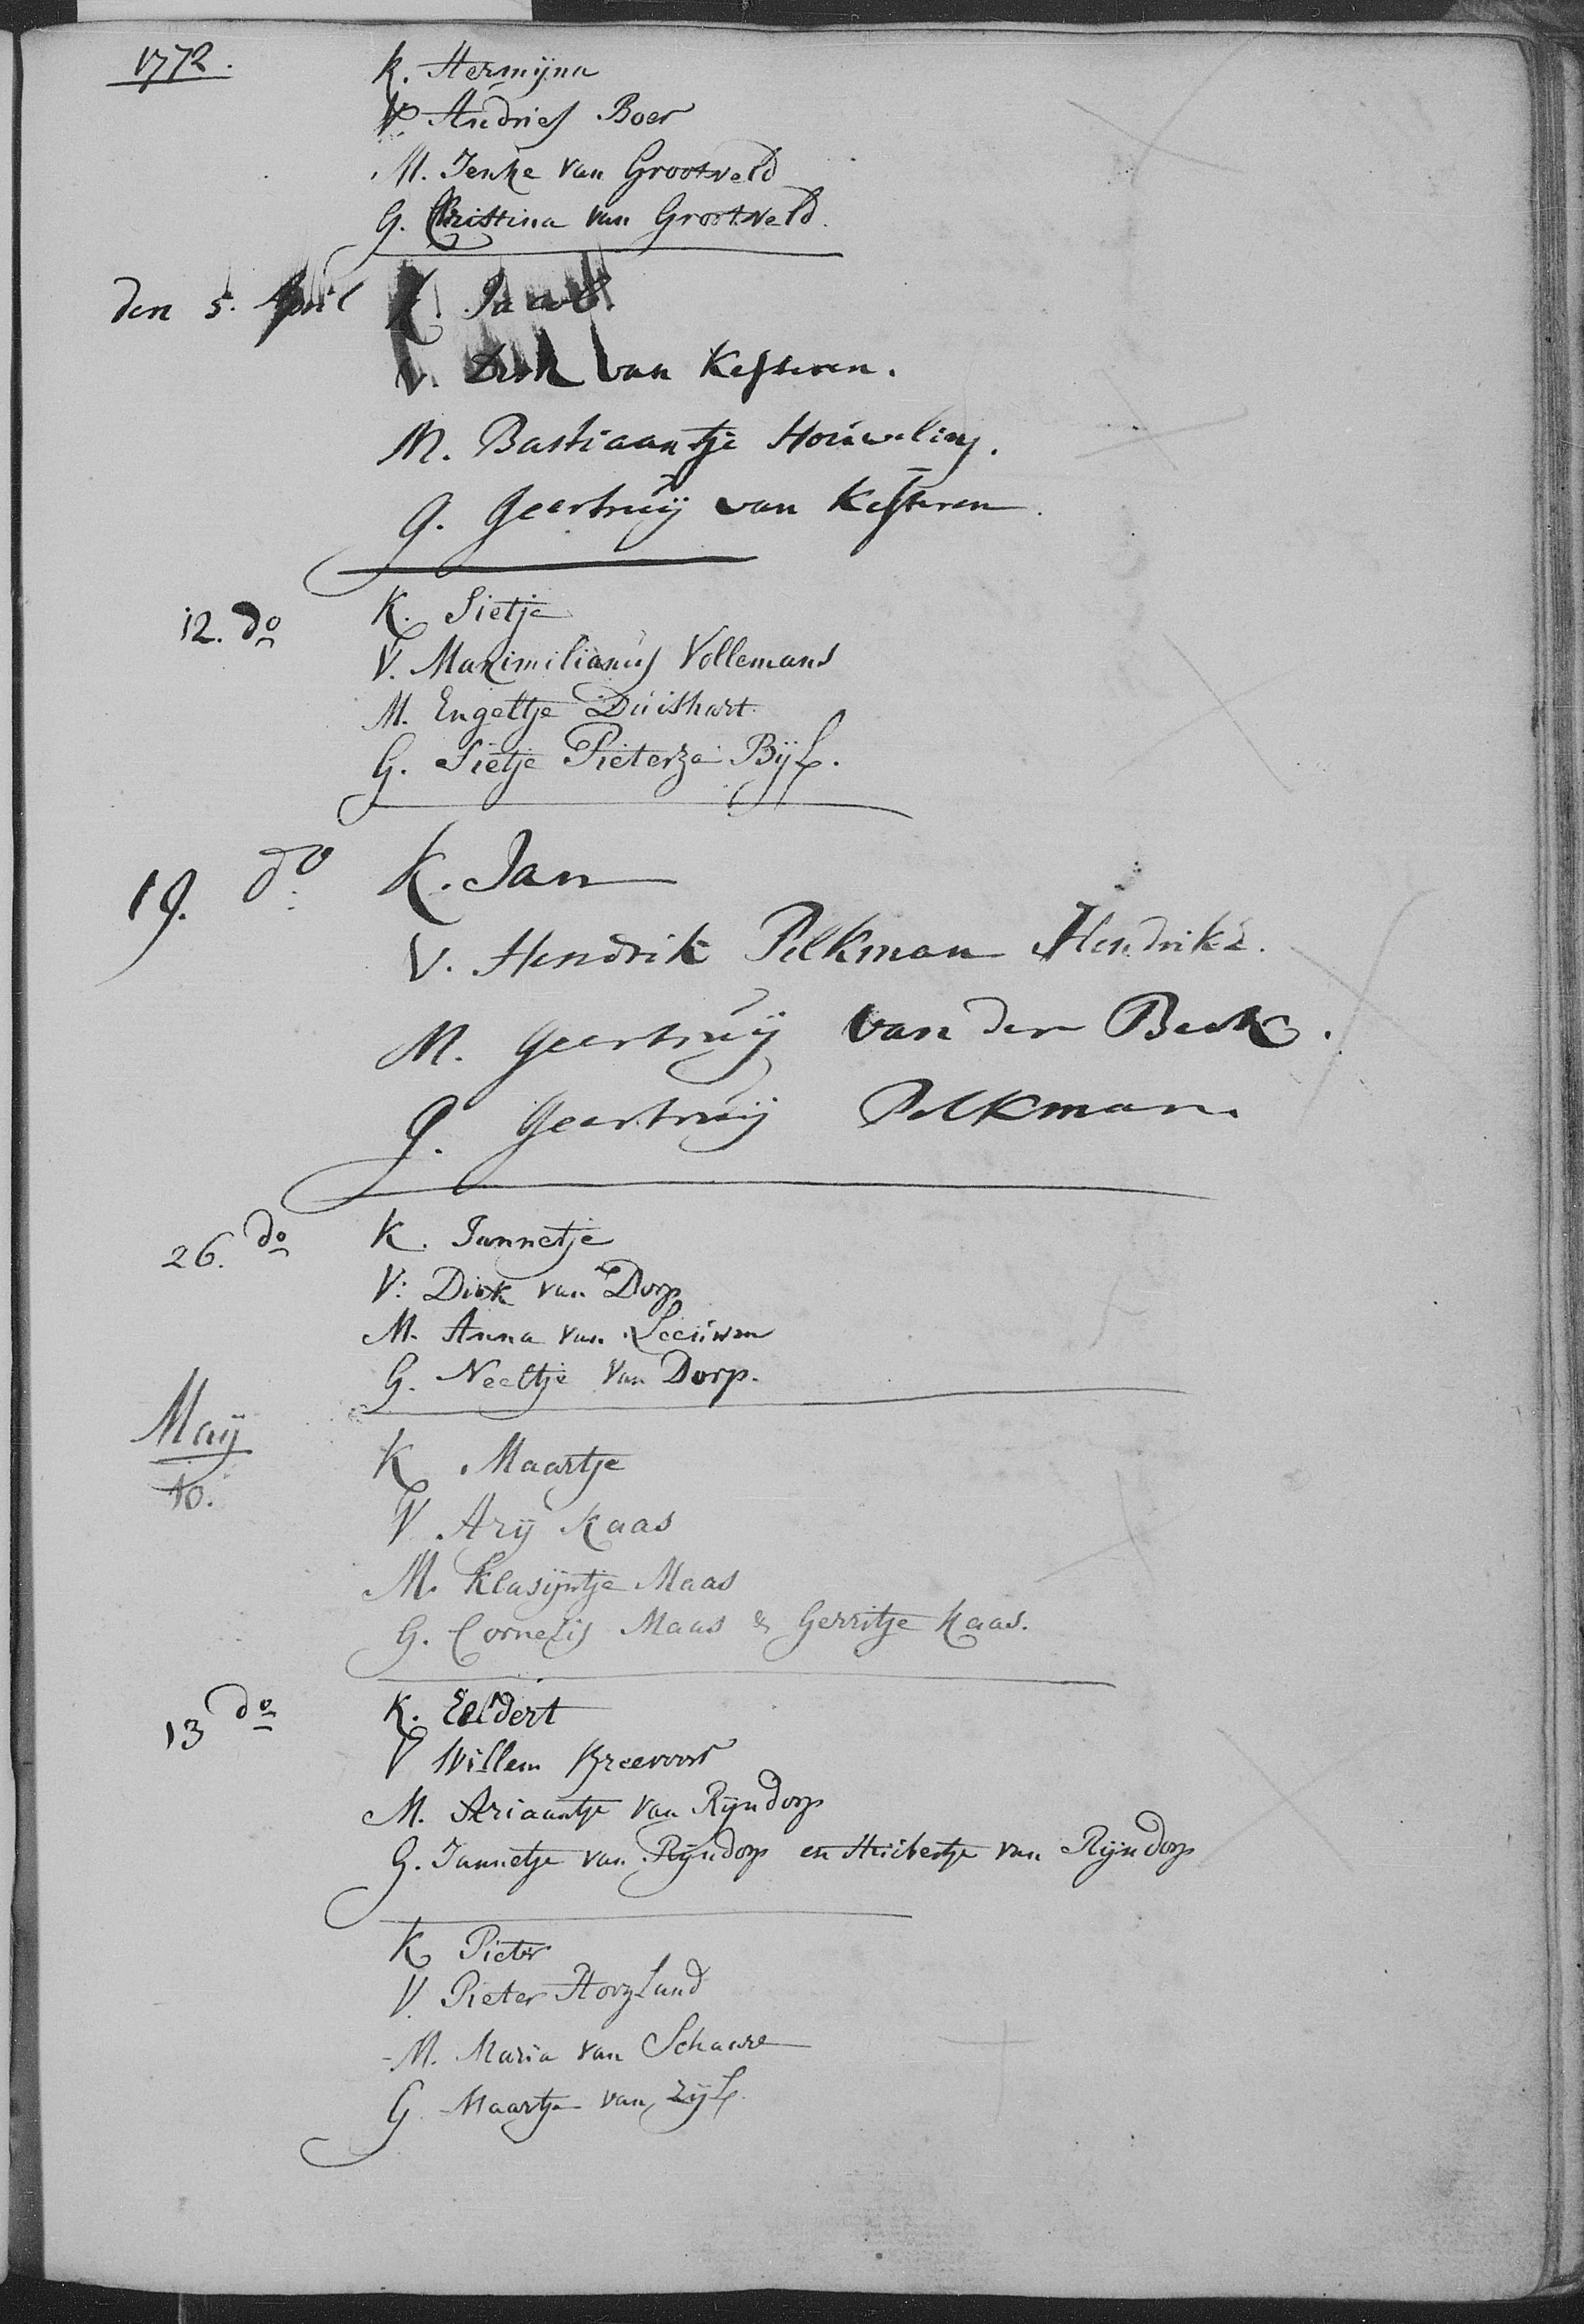 1772.
K. Hermijna
V. Andries Boer
M. Jenke van Grootveld
G. Christina van Grootveld.
den 5. April K. Jacob.
V. Dirk van Kesteren.
M. Bastiaantje Houweling.
G. Geertruij van Kesteren.
12. do K. Sietje
V. Maximilianus Vollemans
M. Engeltje Duishart
G. Sietje Pieterze Bijl.
19. do K. Jan
V. Hendrik Pelkman Hendrikz.
M. Geertruij van der Beek.
G. Geertruij Pelkman.
26. do K. Jannetje
V: Dirk van Dorp
M. Anna van Leeuwen
G. Neeltje van Dorp.
Maij
10.
K Maartje
V Arij Kaas
M. Klasijntje Maas
G. Cornelis Maas & Gerritje Kaas.
13 do K. Eldert
V Willem Breevoort
M. Ariaantje van Rijndorp
G. Jannetje van Rijndorp en Huibertje van Rijndorp
K Pieter
V. Pieter Hoogland
M. Maria van
G Maartje van Zijl.